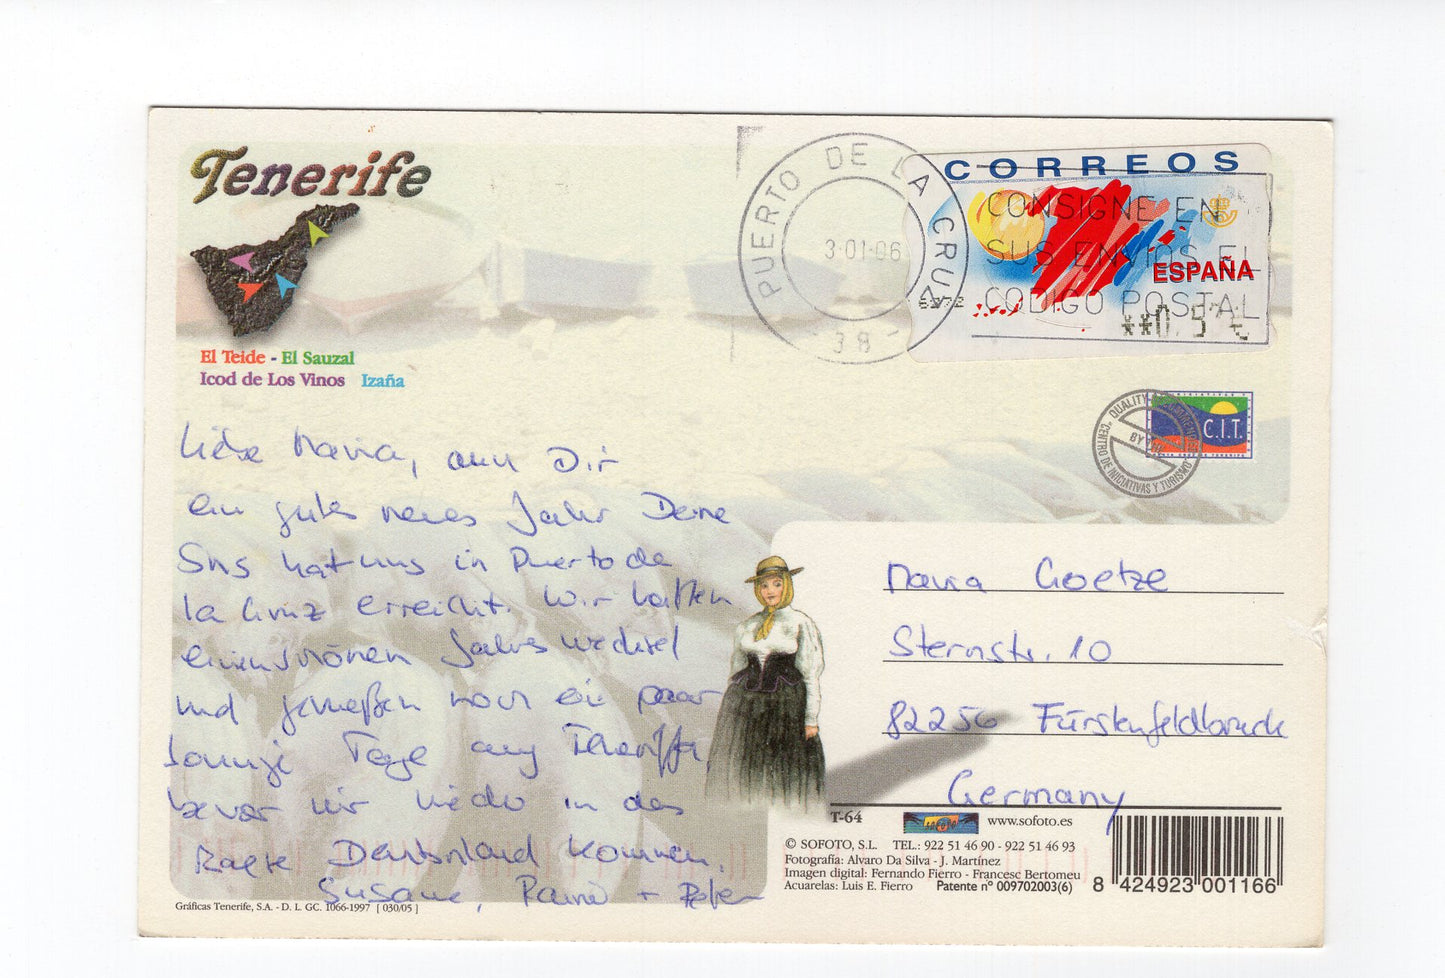 Tenerife
El Teide - El Sauzal
Icod de Los Vinos Izaña
PUERTO DE LA CRUZ
3-01-06
- 38 -
CORREOS
CONSIGNE EN
SUS ENVIOS EL
CODIGO POSTAL
ESPAÑA
QUALITY
BY
"CENTRO DE INICIATIVAS Y TURISMO"
C.I.T.
Liebe Maria, auch Dir
ein gutes neues Jahr Deine
SMS hat uns in Puerto de
la Cruz erreicht. Wir hatten
einen schönen Jahreswechsel
und genießen noch ein paar
sonnige Tage auf Teneriffa,
bevor wir wieder in das
kalte Deutschland kommen.
Susanne, + Peter
Maria Goetze
Sternstr. 10
82256 Fürstenfeldbruck
Germany
T-64
SOFOTO
www.sofoto.es
© SOFOTO, S.L. TEL.: 922 51 46 90 - 922 51 46 93
Fotografía: Alvaro Da Silva - J. Martínez
Imagen digital: Fernando Fierro - Francesc Bertomeu
Acuarelas: Luis E. Fierro Patente nº 009702003(6)
8 424923 001166
Gráficas Tenerife, S.A. - D. L. GC. 1066-1997 [ 030/05 ]